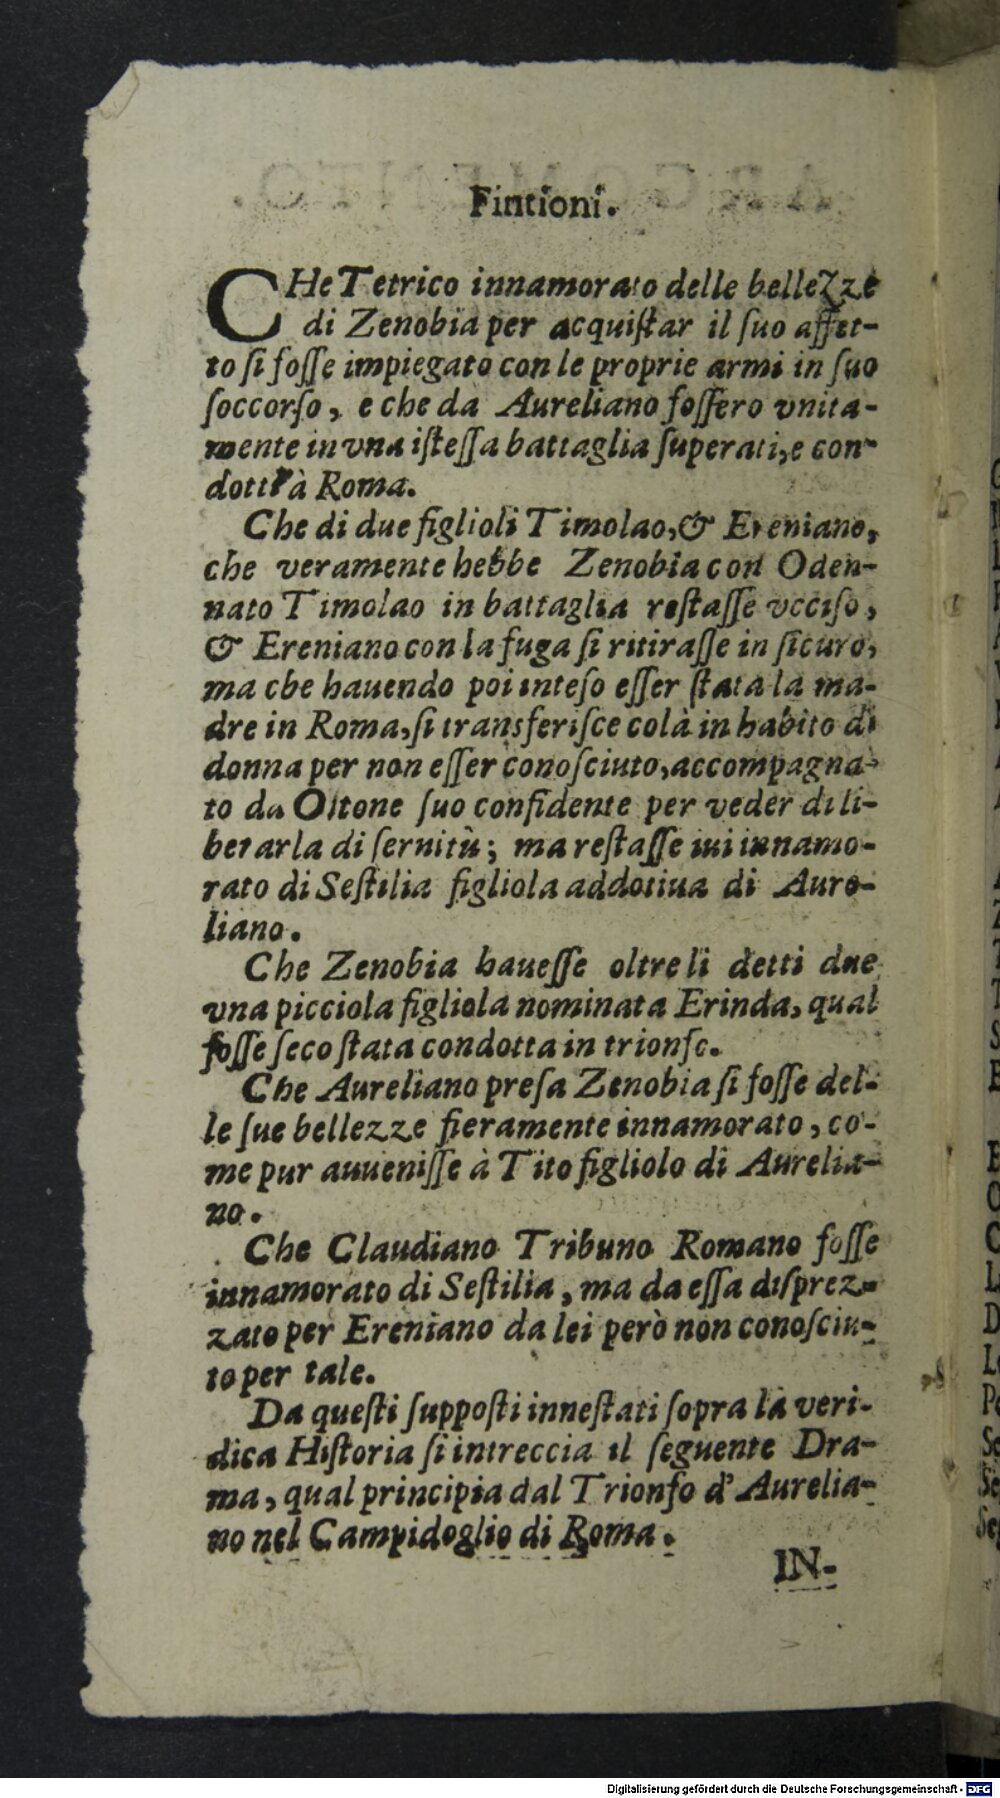 Fintioni.
CHe Tetrico innamorato delle bellezze
di Zenobia per acquiſtar il ſuo affet-
to ſi foſſe impiegato con le proprie armi in ſuo
ſoccorſo, e che da Aureliano foſſero vnita-
mente in vna iſteſſa battaglia ſuperati, e con-
dotti à Roma.
Che di due figlioli Timolao, & Ereniano,
che veramente hebbe Zenobia con Oden-
nato Timolao in battaglia reſtaſſe vcciſo,
& Ereniano con la fuga ſi ritiraſſe in ſicuro,
ma che hauendo poi inteſo eſſer ſtata la ma-
dre in Roma, ſi transferiſce colà in habito di
donna per non eſſer conoſciuto, accompagna-
to da Ottone ſuo confidente per veder di li-
berarla di ſeruitù; ma reſtaſſe iui innamo-
rato di Seſtilia figliola addotiua di Aure-
liano.
Che Zenobia haueſſe oltre li detti due
vna picciola figliola nominata Erinda, qual
foſſe ſeco ſtata condotta in trionfo.
Che Aureliano preſa Zenobia ſi foſſe del-
le ſue bellezze fieramente innamorato, co-
me pur auueniſſe à Tito figliolo di Aurelia-
no.
Che Claudiano Tribuno Romano foſſe
innamorato di Seſtilia, ma da eſſa diſprez-
zato per Ereniano da lei però non conoſciu-
to per tale.
Da queſti ſuppoſti inneſtati ſopra la veri-
dica Hiſtoria ſi intreccia il ſeguente Dra-
ma, qual principia dal Trionfo d'Aurelia-
no nel Campidoglio di Roma.
IN-
Digitalisierung gefördert durch die Deutsche Forschungsgemeinschaft - DFG